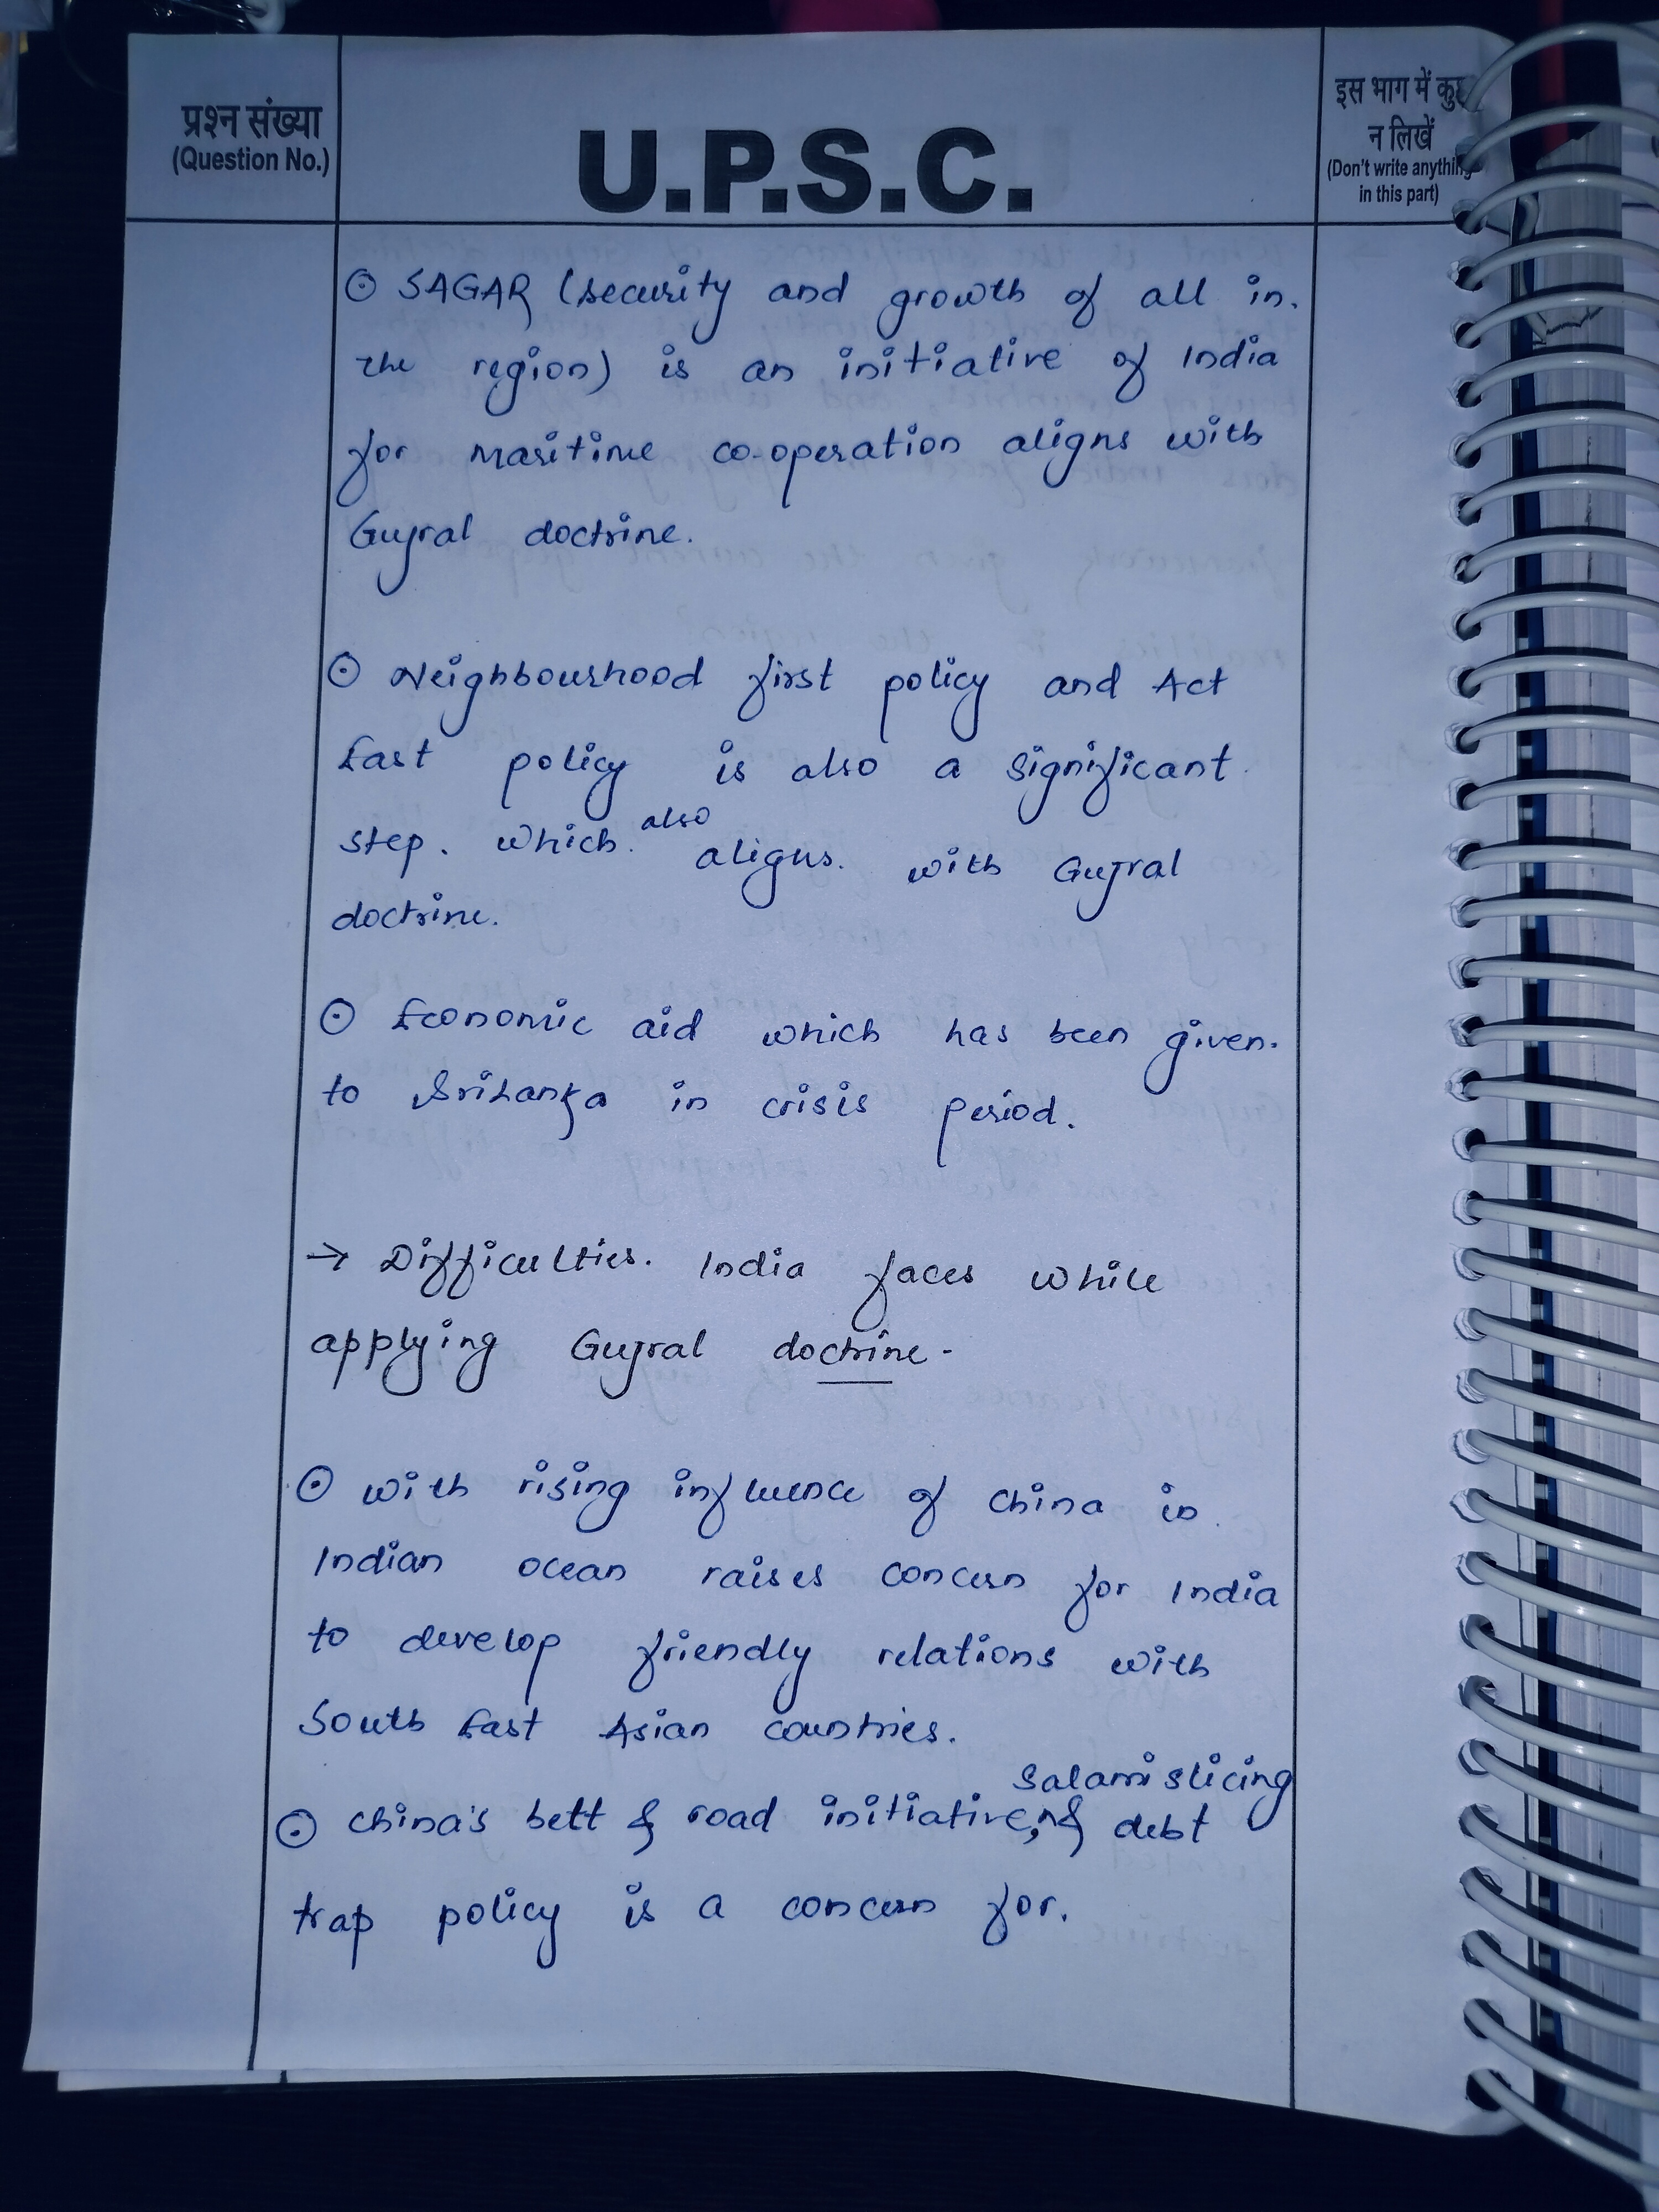 प्रश्न संख्या
(Question No.)
U.P.S.C.
इस भाग में कुछ
न लिखें
(Don't write anything
in this part)
⊙ SAGAR (security and growth of all in.
the region) is an initiative of India
for maritime co-operation aligns with
Gujral doctrine.
⊙ Neighbourhood first policy and Act
East policy is also a significant
step. which. also aligns. with Gujral
doctrine.
⊙ Economic aid which has been given.
to SriLanka in crisis period.
→ Difficulties. India faces while
applying Gujral doctrine -
⊙ with rising influence of China in
Indian ocean raises concern for India
to develop friendly relations with
South East Asian countries.
salami slicing
⊙ China's belt & road initiative, & debt
trap policy is a concern for.